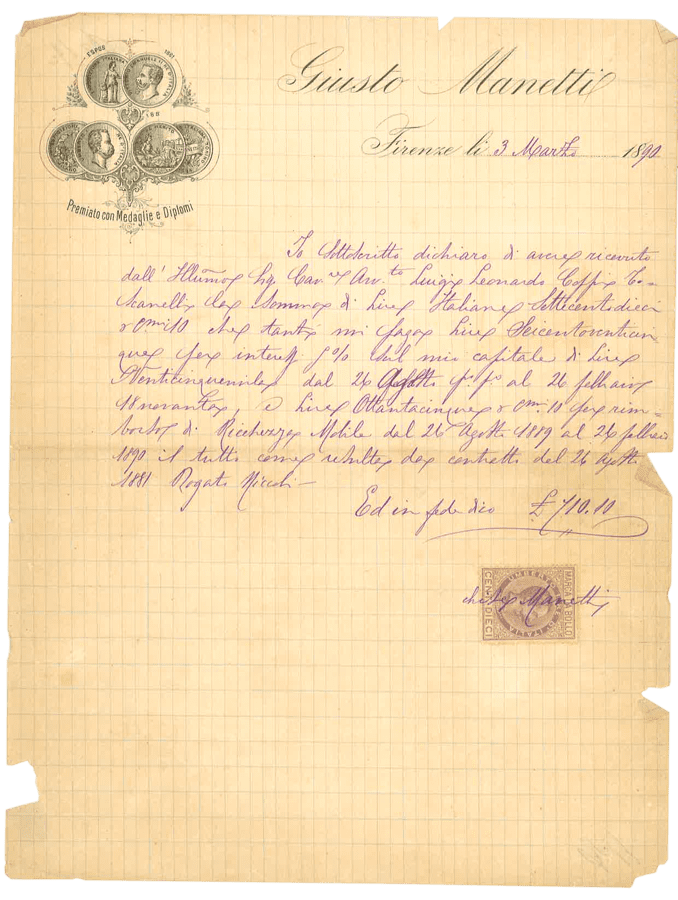 ESPOS 1861
Giusto Manetti
Firenze li 3 Marzo 1890
Premiato con Medaglie e Diplomi
Io Sottoscritto dichiaro di avere ricevuto
dall' Illmo Sig. Cav.re Avv.to Luigi Leonardo Coppi To-
scanelli la Somma di Lire Italiane Settecentodieci
e cmi 10 che tante mi paga Lire Seicentoventicin-
que per interessi 5% sul mio capitale di Lire
Venticinquemila dal 26 Agosto pº pº al 26 febbraio
18novanta, e Lire Ottantacinque e cmi 10 per rim-
borso di Ricchezza Mobile dal 26 Agosto 1889 al 26 febbraio
1890 il tutto come resulta da contratto del 26 Agosto
1881 Rogato Niccoli —
Ed in fede dico £ 710.10
Manetti
UMBERTO
ITALIA
CENT. DIECI
MARCA DA BOLLO